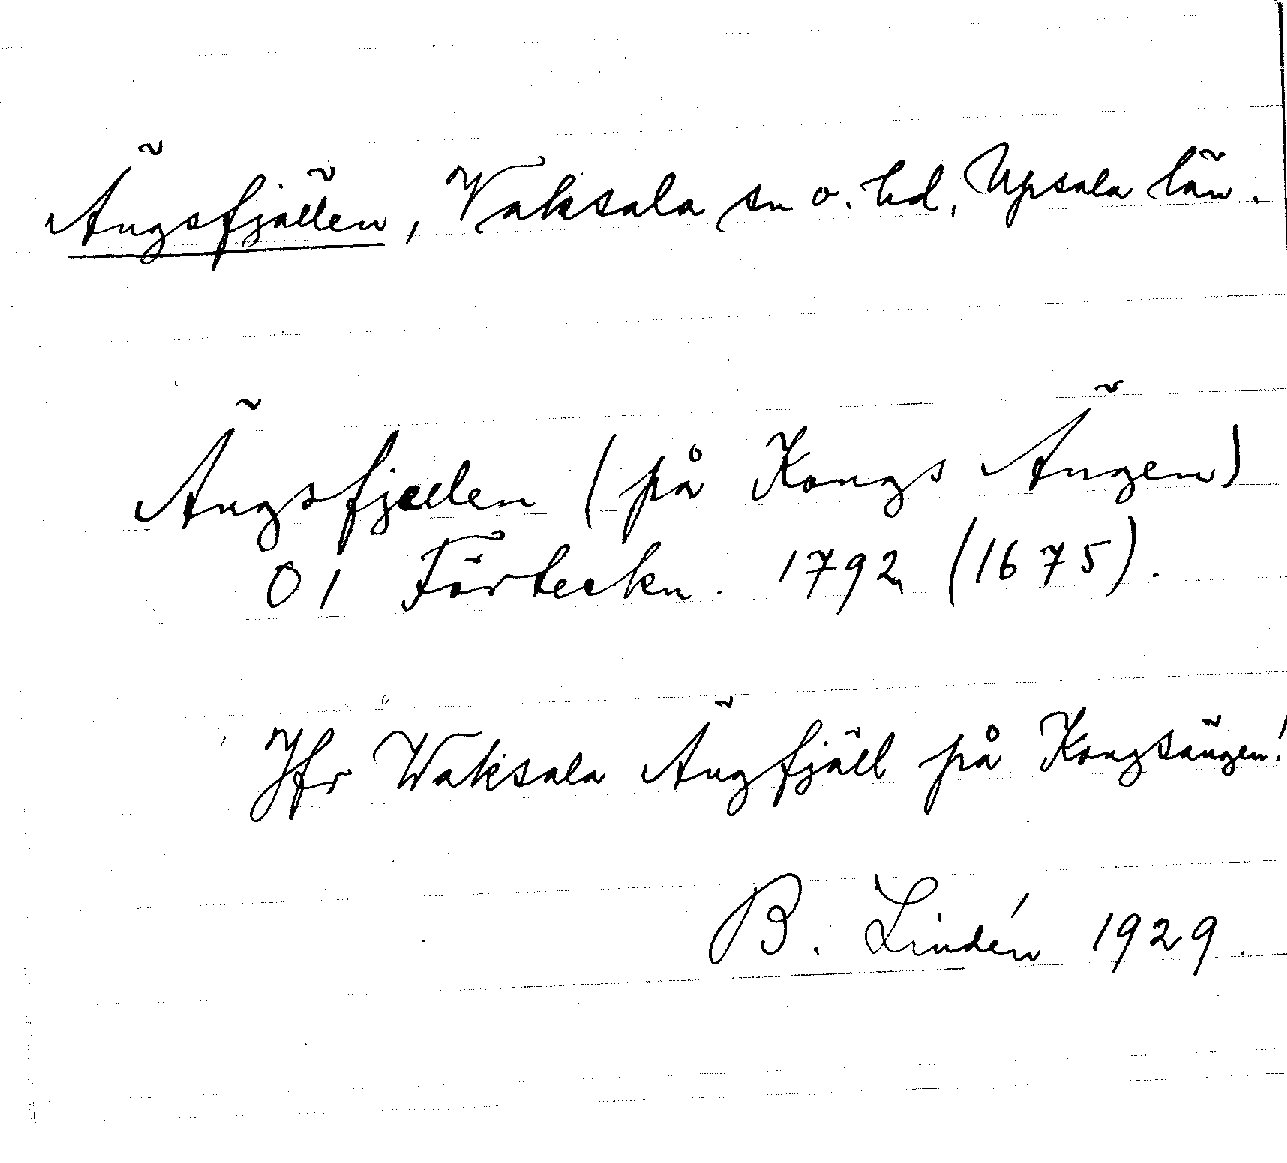 Ängsfjällen, Vaksala sn o. hd, Upsala län.
Ängsfjællen (på Kongs Ängen)
01 Förteckn. 1792 (1675).
Jfr Waksala Ängfjäll på Kongsängen!
B. Lindén 1929.